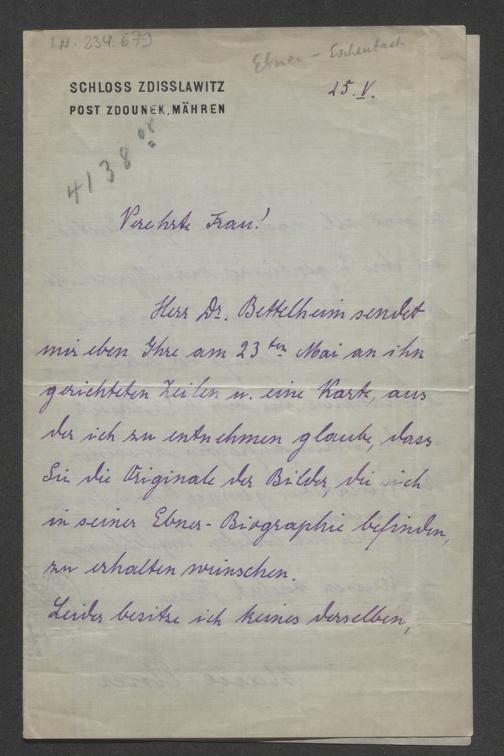 I.N. 234.679
Ebner-Eschenbach
SCHLOSS ZDISSLAWITZ
POST ZDOUNEK, MÄHREN
25. V.
4138
Verehrte Frau!
Herr Dr. Bettelheim sendet
mir eben Ihre am 23ten Mai an ihn
gerichteten Zeilen u. eine Karte, aus
der ich zu entnehmen glaube, dass
Sie die Originale der Bilder, die sich
in seiner Ebner-Biographie befinden,
zu erhalten wünschen.
Leider besitze ich keines derselben,